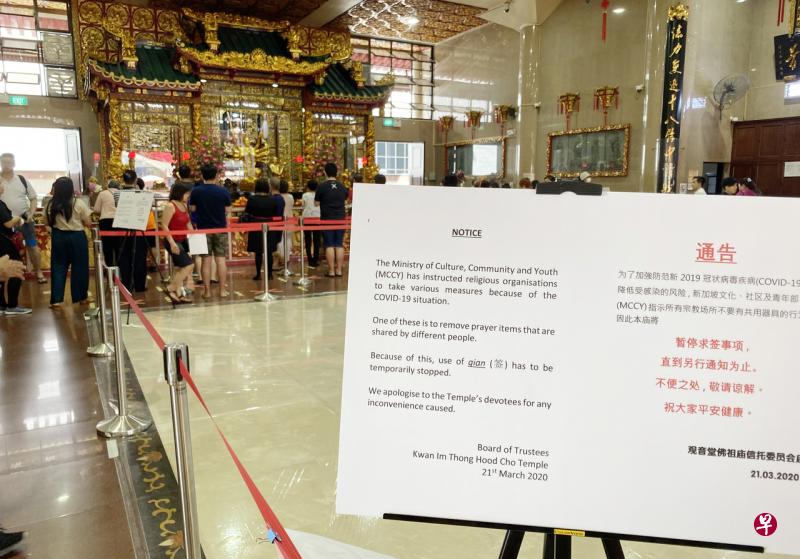 NOTICE
The Ministry of Culture, Community and Youth
(MCCY) has instructed religious organisations
to take various measures because of the
COVID-19 situation.
One of these is to remove prayer items that are
shared by different people.
Because of this, use of qian (签) has to be
temporarily stopped.
We apologise to the Temple's devotees for any
inconvenience caused.
Board of Trustees
Kwan Im Thong Hood Cho Temple
21st March 2020
通告
为了加強防范新 2019 冠状病毒疾病(COVID-19
降低受感染的风险, 新加坡文化、社区及青年部
(MCCY)指示所有宗教场所不要有共用器具的行
因此本庙將
暂停求签事项,
直到另行通知为止。
不便之处, 敬请谅解。
祝大家平安健康。
观音堂佛祖庙信托委员会启
21.03.2020
EXIT
法力無邊十八
早